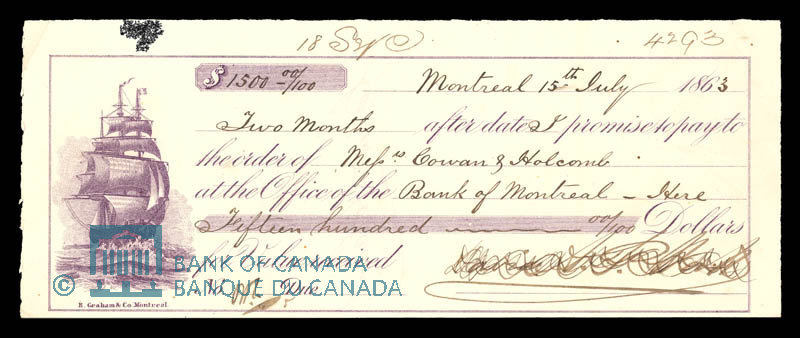 18 Sep 4293
$ 1500 00/100 Montreal 15th July 1863
Two Months after date I promise to pay to
the order of Mess rs Cowan & Holcomb
at the Office of the Bank of Montreal – Here
Fifteen hundred 00/100 Dollars
for Value received
No. Due
BANK OF CANADA
BANQUE DU CANADA
©
R. Graham & Co Montreal